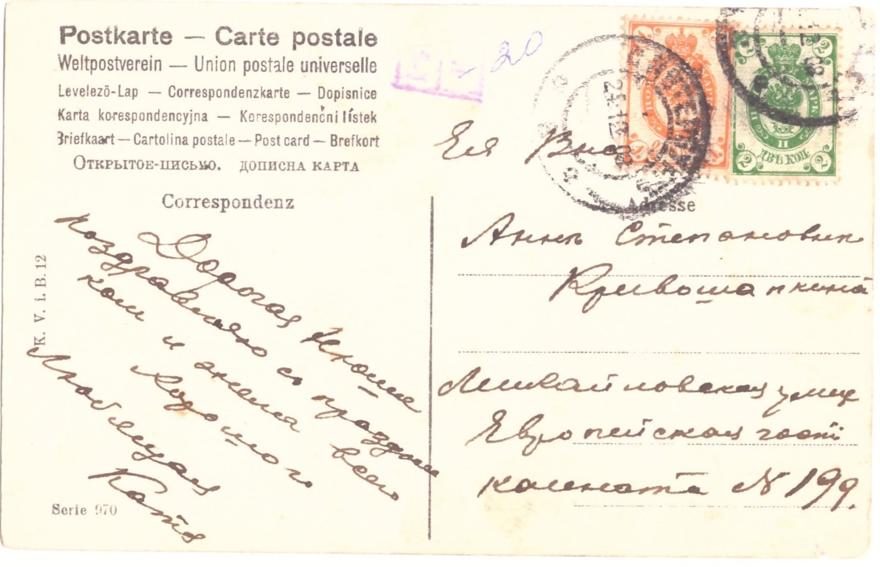 Postkarte — Carte postale
Weltpostverein — Union postale universelle
Levelezö-Lap — Correspondenzkarte — Dopisnice
Karta korespondencyjna — Korespondenčni lístek
Briefkaart — Cartolina postale — Post card — Brefkort
Открытое-письмо. дописна карта
Correspondenz
Дорогая Нюша
поздравляю съ праздни
ком и желаю всего
хорошого
Любящая
Катя
K. V. i. B. 12
Serie 970
20
Ея
Adresse
Аннѣ Степановнѣ
Кривошапкиной
Михайловская улица
Европейская гост
комната N 199.
2 2
ДВѢ КОП.
2 2